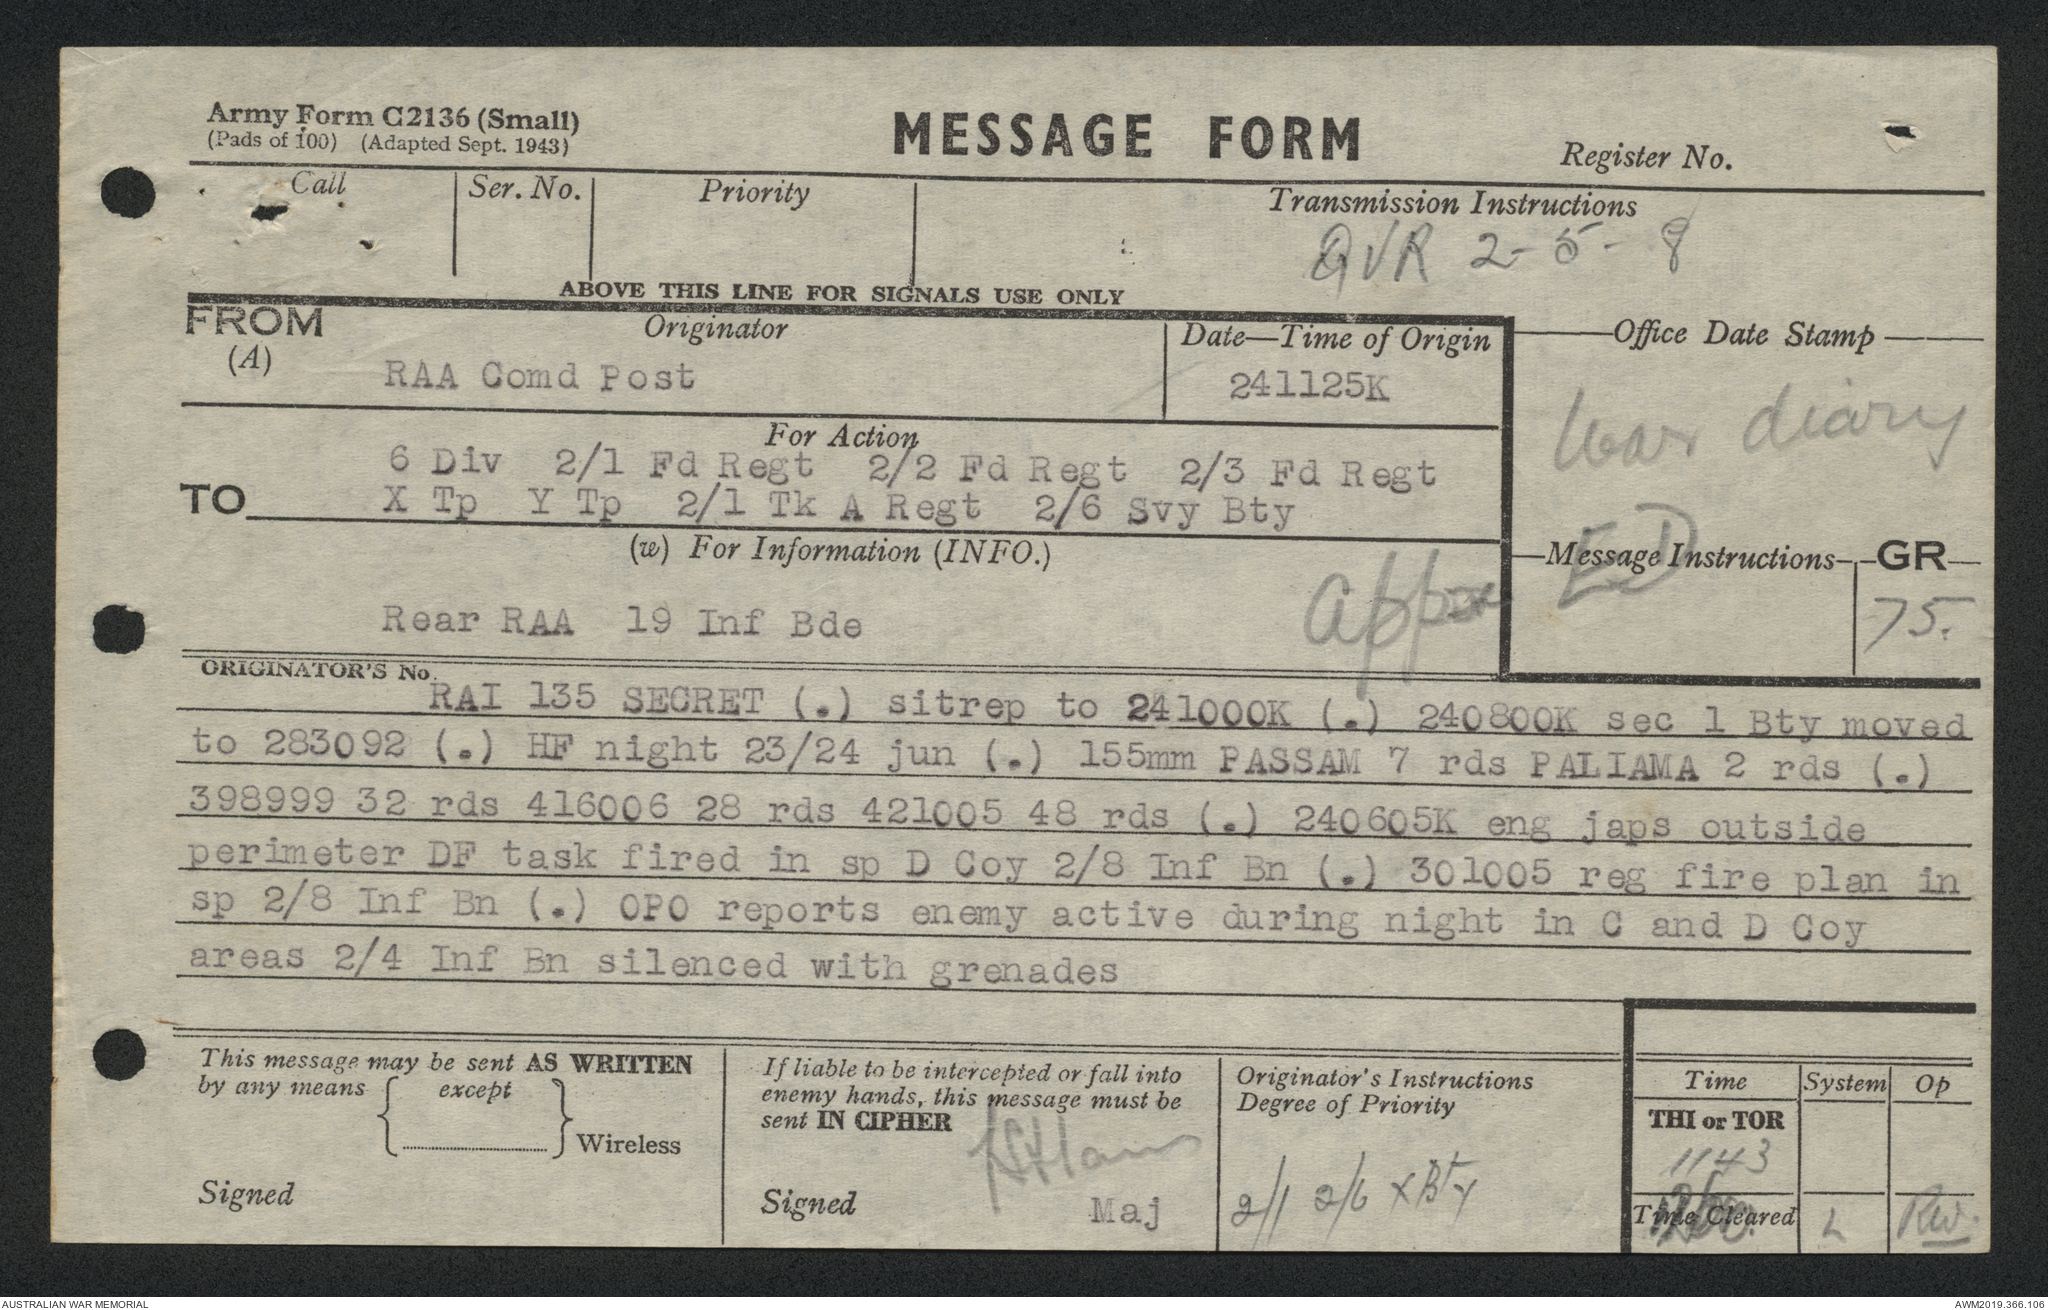 Army Form C2136 (Small)
(Pads of 100) (Adapted Sept. 1943)
MESSAGE FORM
Register No.
Call
Ser. No.
Priority
Transmission Instructions
QVR 2-5-8
ABOVE THIS LINE FOR SIGNALS USE ONLY
FROM
(A)
Originator
RAA Comd Post
Date—Time of Origin
241125K
Office Date Stamp
War diary
ED
For Action
6 Div 2/1 Fd Regt 2/2 Fd Regt 2/3 Fd Regt
TO
X Tp Y Tp 2/1 Tk A Regt 2/6 Svy Bty
(w) For Information (INFO.)
Rear RAA 19 Inf Bde
Message Instructions
GR
75.
ORIGINATOR'S No.
RAI 135 SECRET (.) sitrep to 241000K (.) 240800K sec 1 Bty moved
to 283092 (.) HF night 23/24 jun (.) 155mm PASSAM 7 rds PALIAMA 2 rds (.)
398999 32 rds 416006 28 rds 421005 48 rds (.) 240605K eng japs outside
perimeter DF task fired in sp D Coy 2/8 Inf Bn (.) 301005 reg fire plan in
sp 2/8 Inf Bn (.) OPO reports enemy active during night in C and D Coy
areas 2/4 Inf Bn silenced with grenades
This message may be sent AS WRITTEN
by any means { except } Wireless
Signed
If liable to be intercepted or fall into
enemy hands, this message must be
sent IN CIPHER
Signed Maj
Originator's Instructions
Degree of Priority
2/1 2/6 X Bty
Time
System
Op
THI or TOR
1143
Time Cleared
L
RW.
AUSTRALIAN WAR MEMORIAL
AWM2019.366.106